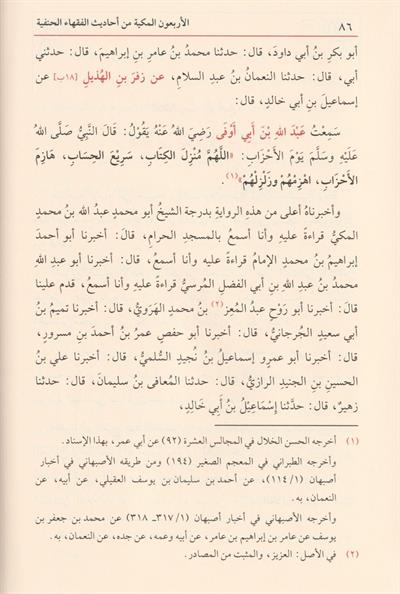 ٨٦
الأربعون المكية من أحاديث الفقهاء الحنفية
أبو بكرِ بنُ أبي داودَ، قال: حدثنا محمدُ بنُ عامرِ بنِ إبراهيمَ، قال: حدثنا
أبي، قال: حدثنا النعمانُ بنُ عبدِ السلامِ، عن زفرَ بنِ الهُذيلِ [١٨ب] عن
إسماعيلَ بنِ أبي خالدٍ، قال:
سَمِعْتُ عَبْدَ اللهِ بْنَ أَبِي أَوْفَى رَضِيَ اللهُ عَنْهُ يَقُولُ: قَالَ النَّبِيُّ صَلَّى اللهُ
عَلَيْهِ وَسَلَّمَ يَوْمَ الأَحْزَابِ: «اللَّهُمَّ مُنْزِلَ الكِتَابِ، سَرِيْعَ الحِسَابِ، هَازِمَ
الأَحْزَابِ، اهْزِمْهُمْ وَزَلْزِلْهُمْ»(١).
وأخبرناهُ أعلى من هذهِ الروايةِ بدرجة الشيخُ أبو محمدٍ عبدُ اللهِ بنُ محمدٍ
المكيُّ قراءةً عليهِ وأنا أسمعُ بالمسجدِ الحرامِ، قالَ: أخبرنا أبو أحمدَ
إبراهيمُ بنُ محمدٍ الإمامُ قراءةً عليه وأنا أسمعُ، قال: أخبرنا أبو عبدِ اللهِ
محمدُ بنُ عبدِ اللهِ بنِ أبي الفضلِ المُرسيُّ قراءةً عليهِ وأنا أسمعُ، قدم علينا
قالَ: أخبرنا أبو رَوْحٍ عبدُ المُعِزِّ(٢) بنُ محمدٍ الهَرَوِيُّ، قال: أخبرنا تميمُ بنُ
أبي سعيدٍ الجُرجانيُّ، قال: أخبرنا أبو حفصٍ عمرُ بنُ أحمدَ بنِ مسرورٍ،
قال: أخبرنا أبو عمرٍو إسماعيلُ بنُ نُجيدٍ السُّلميُّ، قال: أخبرنا عليُّ بنُ
الحسينِ بنِ الجنيدِ الرازيُّ، قال: حدثنا المُعافى بنُ سليمانَ، قال: حدثنا
زهيرٌ، قال: حدَّثنا إِسْمَاعِيْلُ بنُ أَبِي خَالِدٍ،
(١) أخرجه الحسن الخلال في المجالس العشرة (٩٢) عن أبي عمر، بهذا الإسناد.
وأخرجه الطبراني في المعجم الصغير (١٩٤) ومن طريقه الأصبهاني في أخبار
أصبهان (١/ ١١٤)، عن أحمد بن سليمان بن يوسف العقيلي، عن أبيه، عن
النعمان، به.
وأخرجه الأصبهاني في أخبار أصبهان (١/ ٣١٧ـ ٣١٨) عن محمد بن جعفر بن
يوسف عن عامر بن إبراهيم بن عامر، عن أبيه وعمه، عن جده، عن النعمان، به.
(٢) في الأصل: العزيز، والمثبت من المصادر.